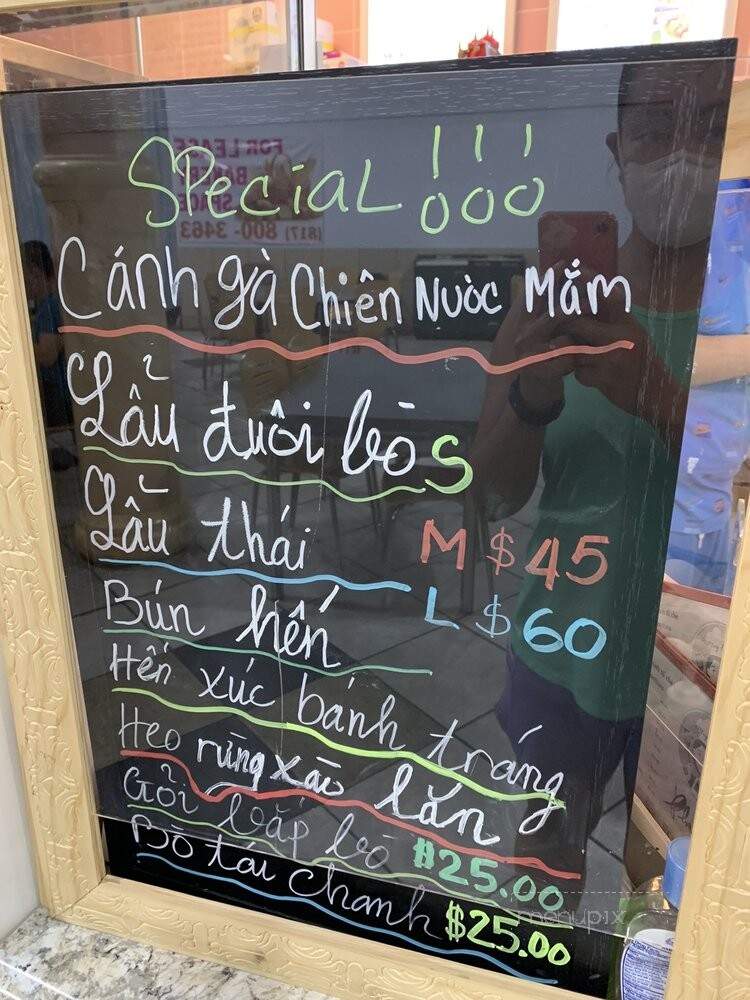 SPeciaL !!!
Cánh gà Chiên Nước Mắm
Lẩu đuôi bò S
Lẩu thái M $45
L $60
Bún hến
Hến xúc bánh tráng
Heo rừng xào lăn
Gỏi bắp bò $25.00
Bò tái chanh $25.00
FOR LEASE
BAKERY
SPACE
(817) 800-3463
menupix